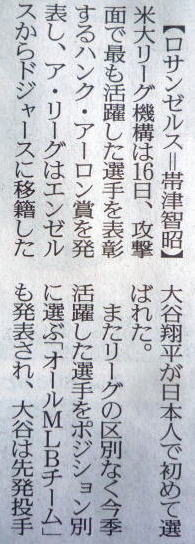 【ロサンゼルス＝帯津智昭】
米大リーグ機構は16日、攻撃
面で最も活躍した選手を表彰
するハンク・アーロン賞を発
表し、ア・リーグはエンゼル
スからドジャースに移籍した
大谷翔平が日本人で初めて選
ばれた。
またリーグの区別なく今季
活躍した選手をポジション別
に選ぶ「オールMLBチーム」
も発表され、大谷は先発投手